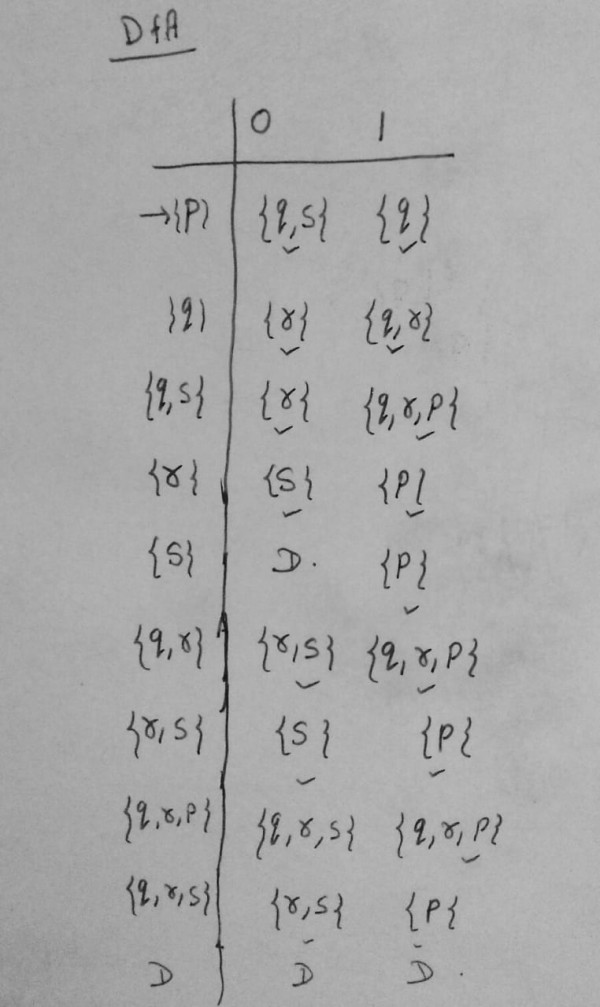 DfA
0 1
→{P} {q,s} {q}
{q} {r} {q,r}
{q,s} {r} {q,r,P}
{r} {S} {P}
{S} D. {P}
{q,r} {r,s} {q,r,P}
{r,s} {S} {P}
{q,r,P} {q,r,s} {q,r,P}
{q,r,s} {r,s} {P}
D D D.